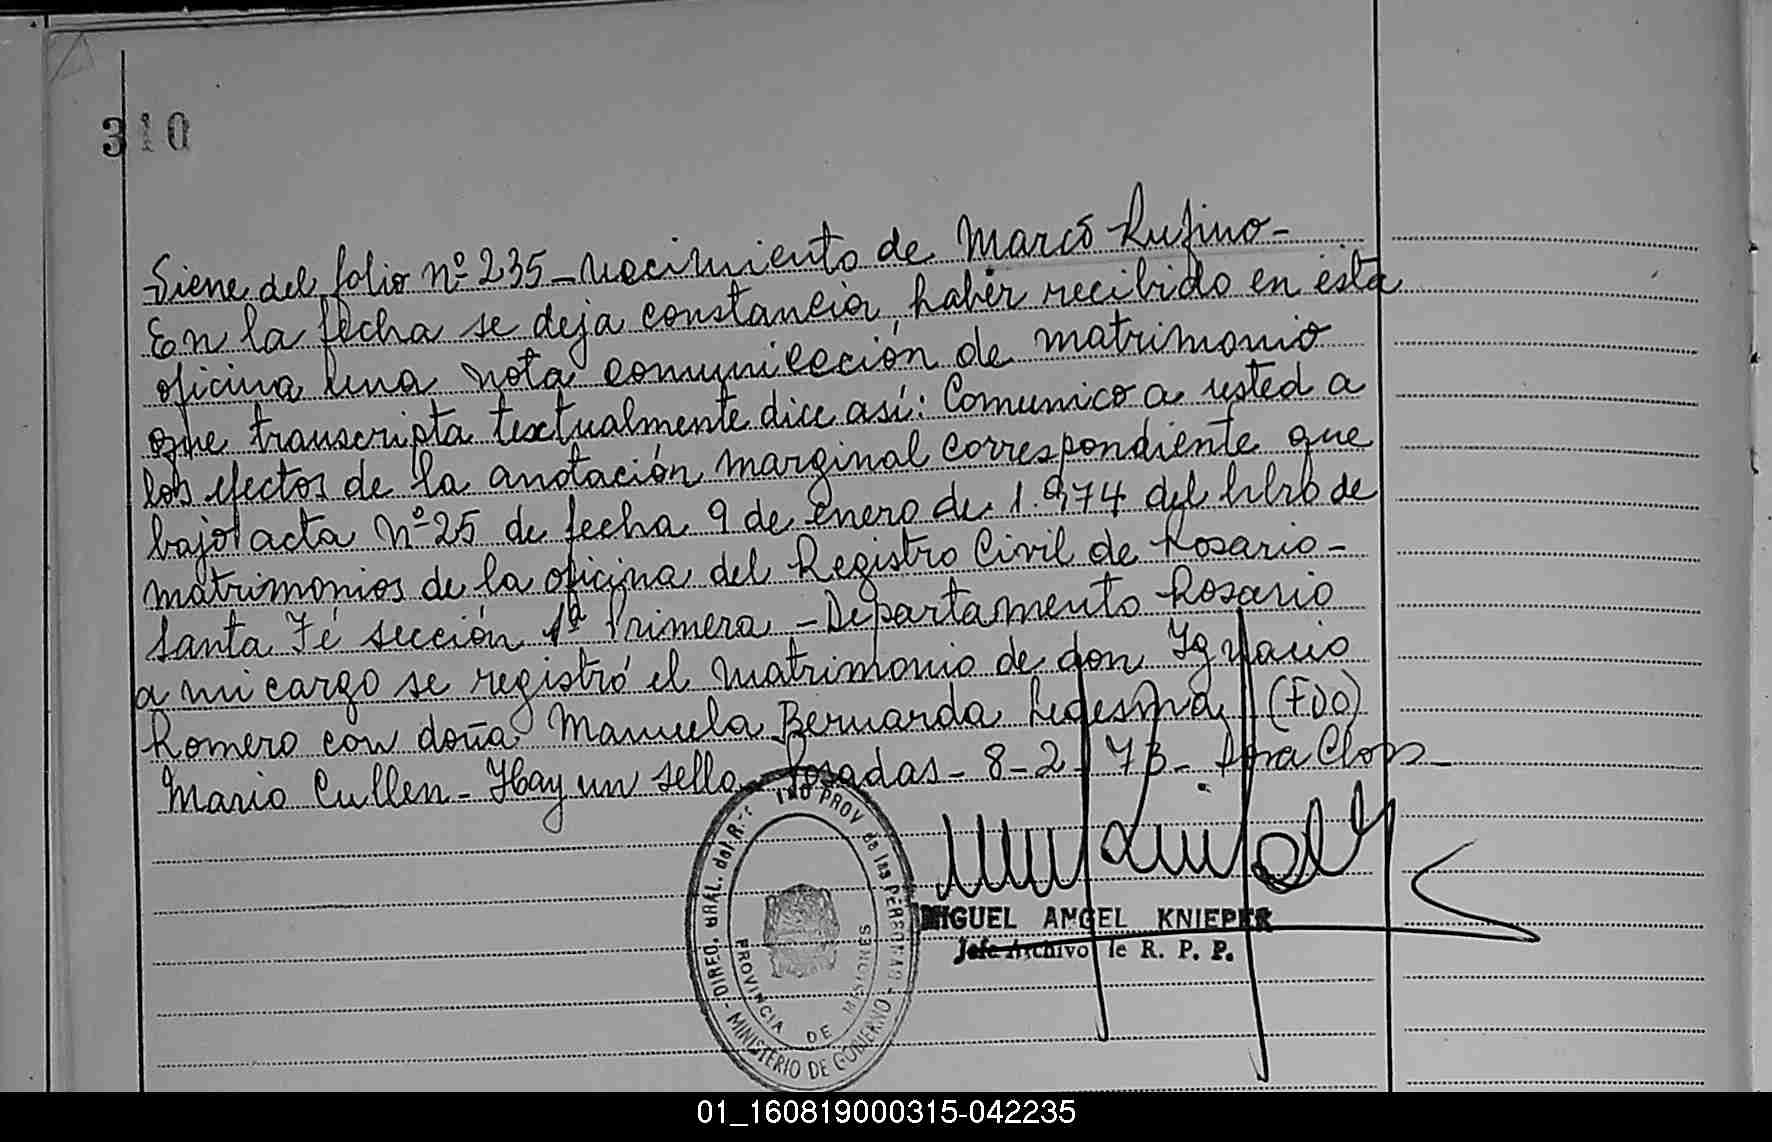 310
Viene del folio Nº 235 - Nacimiento de Marcó Rufino -
En la fecha se deja constancia, haber recibido en esta
oficina una nota comunicación de matrimonio
que transcripta textualmente dice así: Comunico a usted a
los efectos de la anotación marginal correspondiente que
bajo acta Nº 25 de fecha 9 de enero de 1.974 del libro de
matrimonios de la oficina del Registro Civil de Rosario -
Santa Fé sección 1ª Primera - Departamento Rosario
a mi cargo se registró el matrimonio de don Ygnacio
Romero con doña Manuela Bernarda Ledesma, (FDO)
Mario Cullen - Hay un sello. Posadas - 8 - 2 - 78 -
MIGUEL ANGEL KNIEPER
Jefe Archivo de R. P. P.
DIREC. GRAL. del R. PROV de las PERSONAS
MINISTERIO DE GOBIERNO
PROVINCIA DE MISIONES
01_160819000315-042235